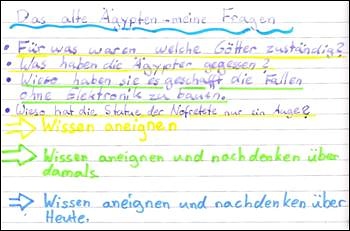 Das alte Ägypten - meine Fragen
• Für was waren welche Götter zuständig?
• Was haben die Ägypter gegessen?
• Wieso haben sie es geschafft die Fallen
ohne Elektronik zu bauen.
• Wieso hat die Statue der Nofretete nur ein Auge?
⇒ Wissen aneignen
⇒ Wissen aneignen und nachdenken über
damals
⇒ Wissen aneignen und nachdenken über
Heute.